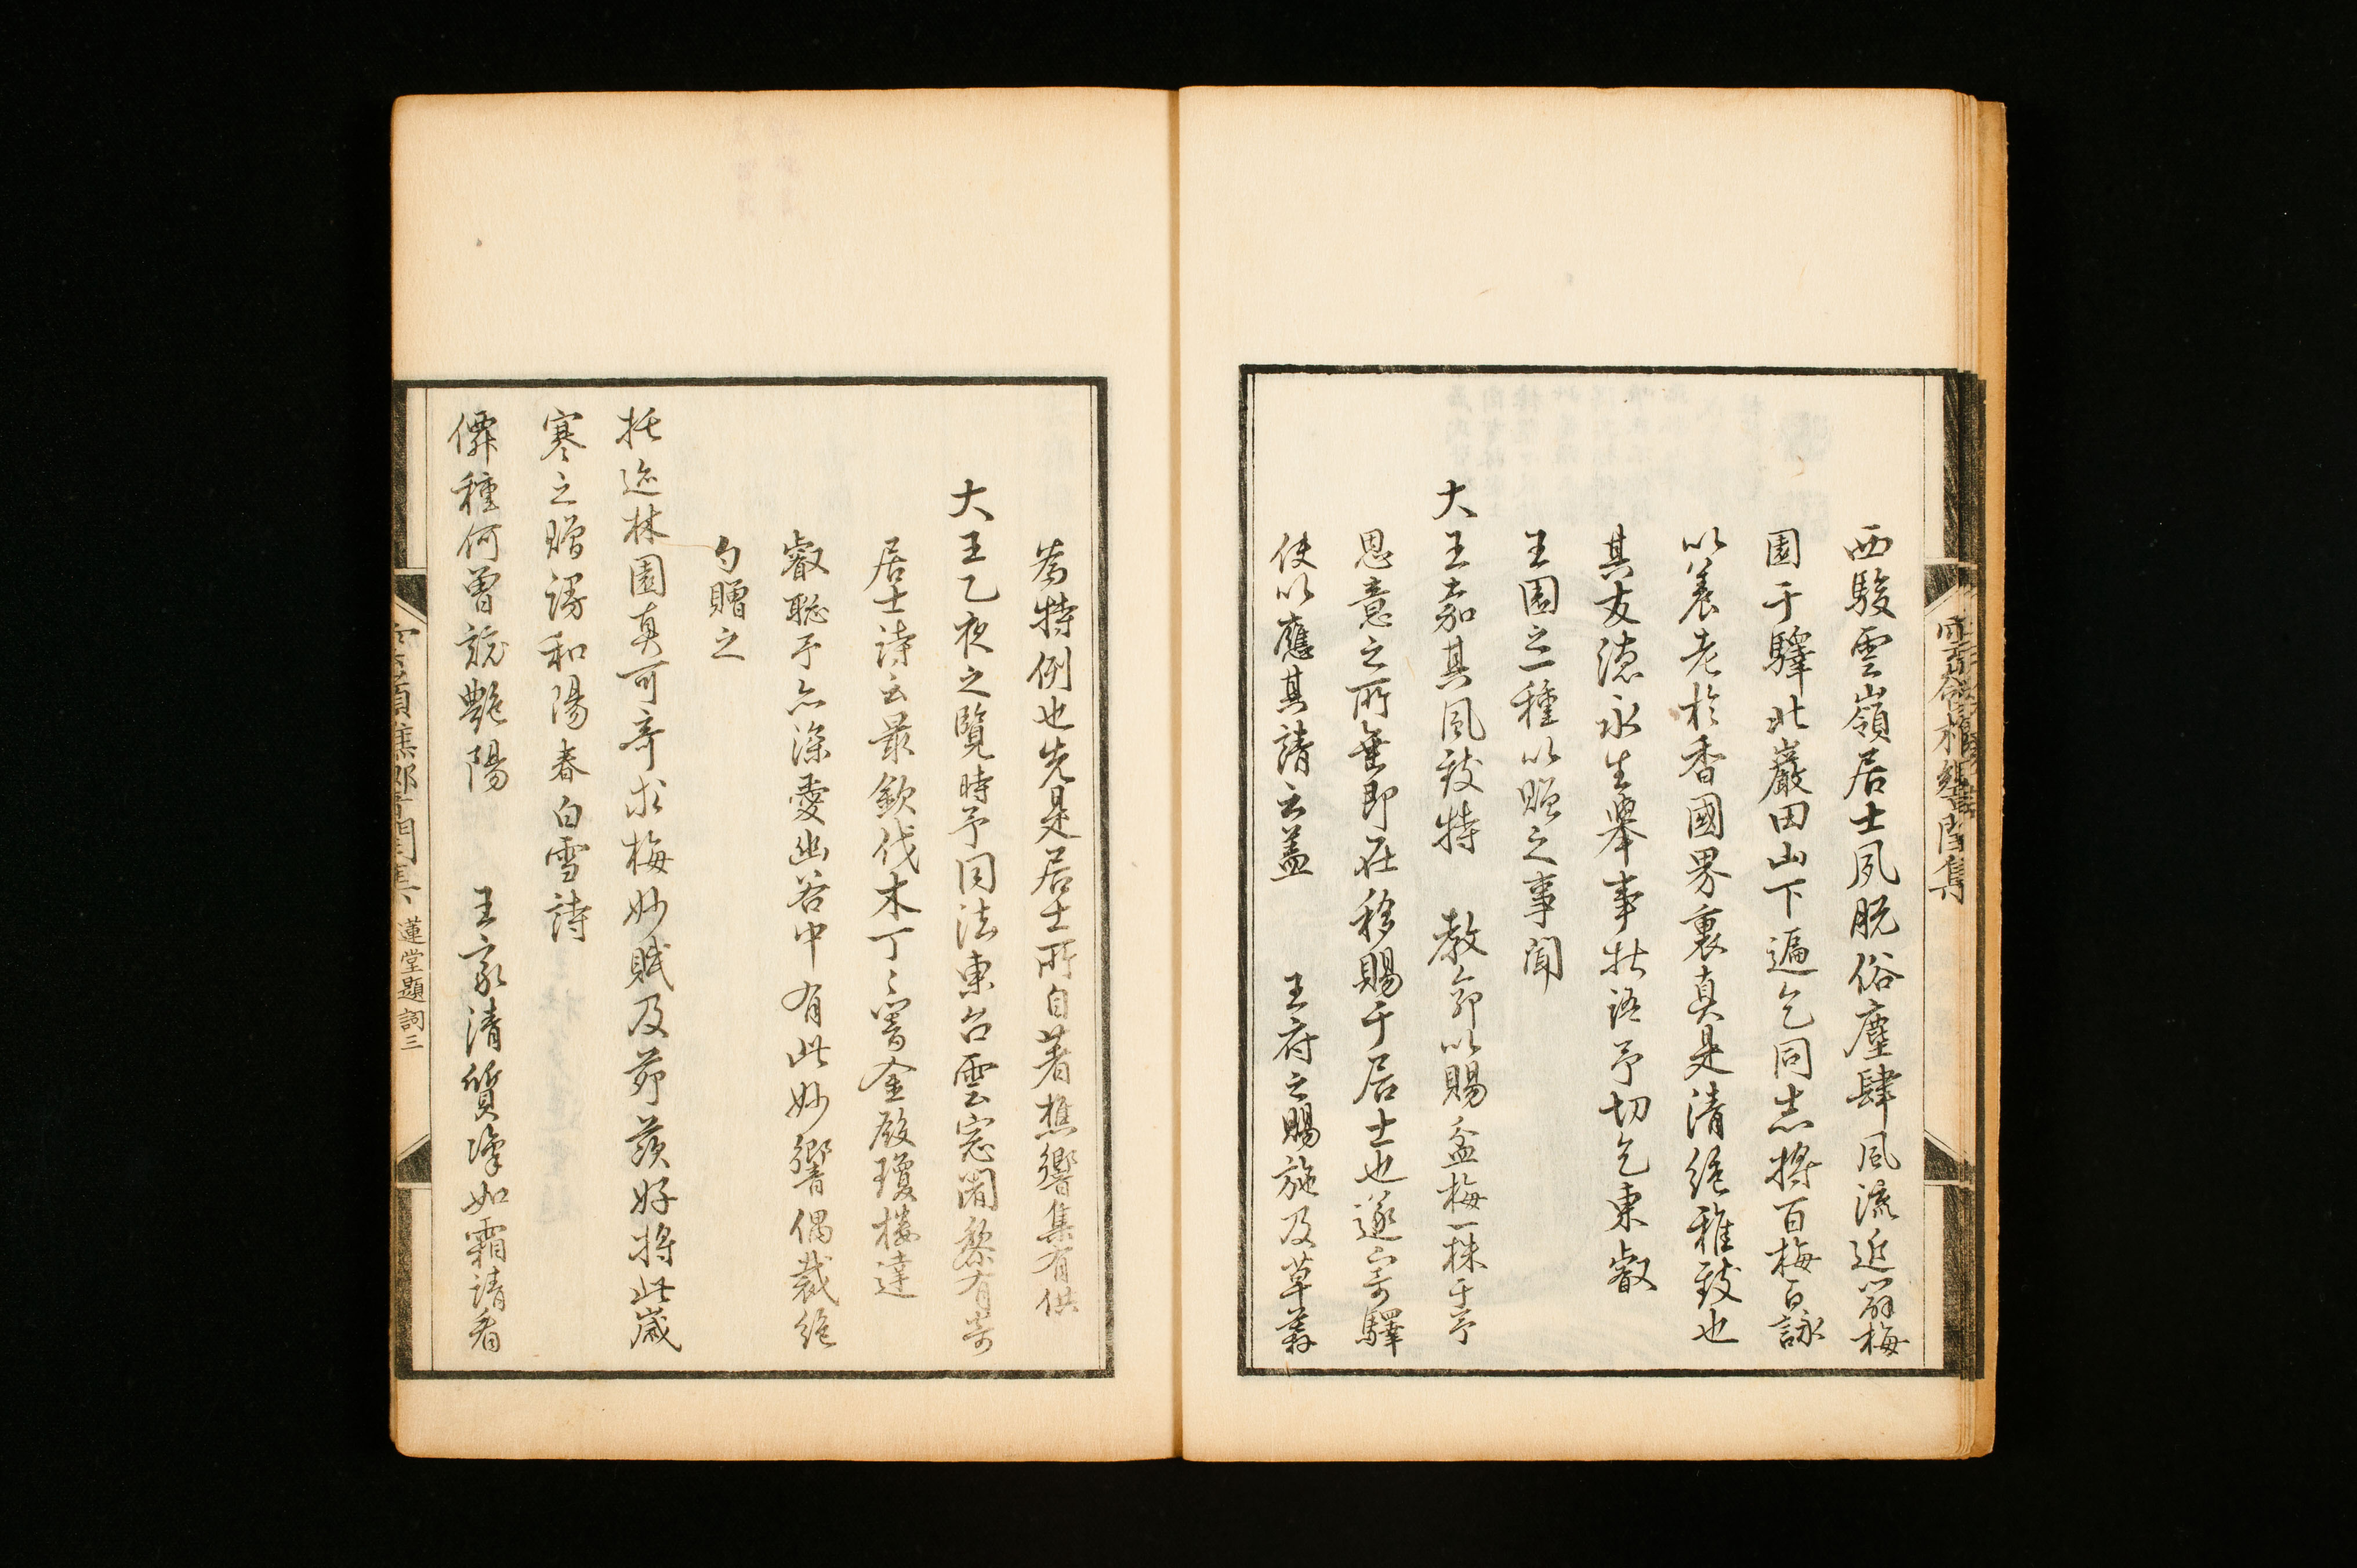 西駿雲嶺居士夙脱俗塵肆風流近築梅
園于驛北巖田山下遍乞同志將百梅百詠
以養老於香國界裏真是清絕雅致也
其友德永生舉事状語予切乞東叡
王園之一種以贈之事聞
大王嘉其風致特 教命以賜盆梅一株于予
恩意之所垂即在移賜于居士也遂寄驛
使以應其請云蓋 王府之賜施及草莽
為特例也先是居士所自著樵響集有供
大王乙夜之覽時予同法東台雲窓闍黎有寄
居士詩云最欽伐木丁〻響金殿瓊樓達
叡聡予亦深愛幽谷中有此妙響偶裁絕
句贈之
托迹林園真可奇求梅妙賦及茆茨好將此歳
寒之贈謾和陽春白雪詩
僊種何曾競艶陽 王家清質潔如霜請看
蓮堂題詞三